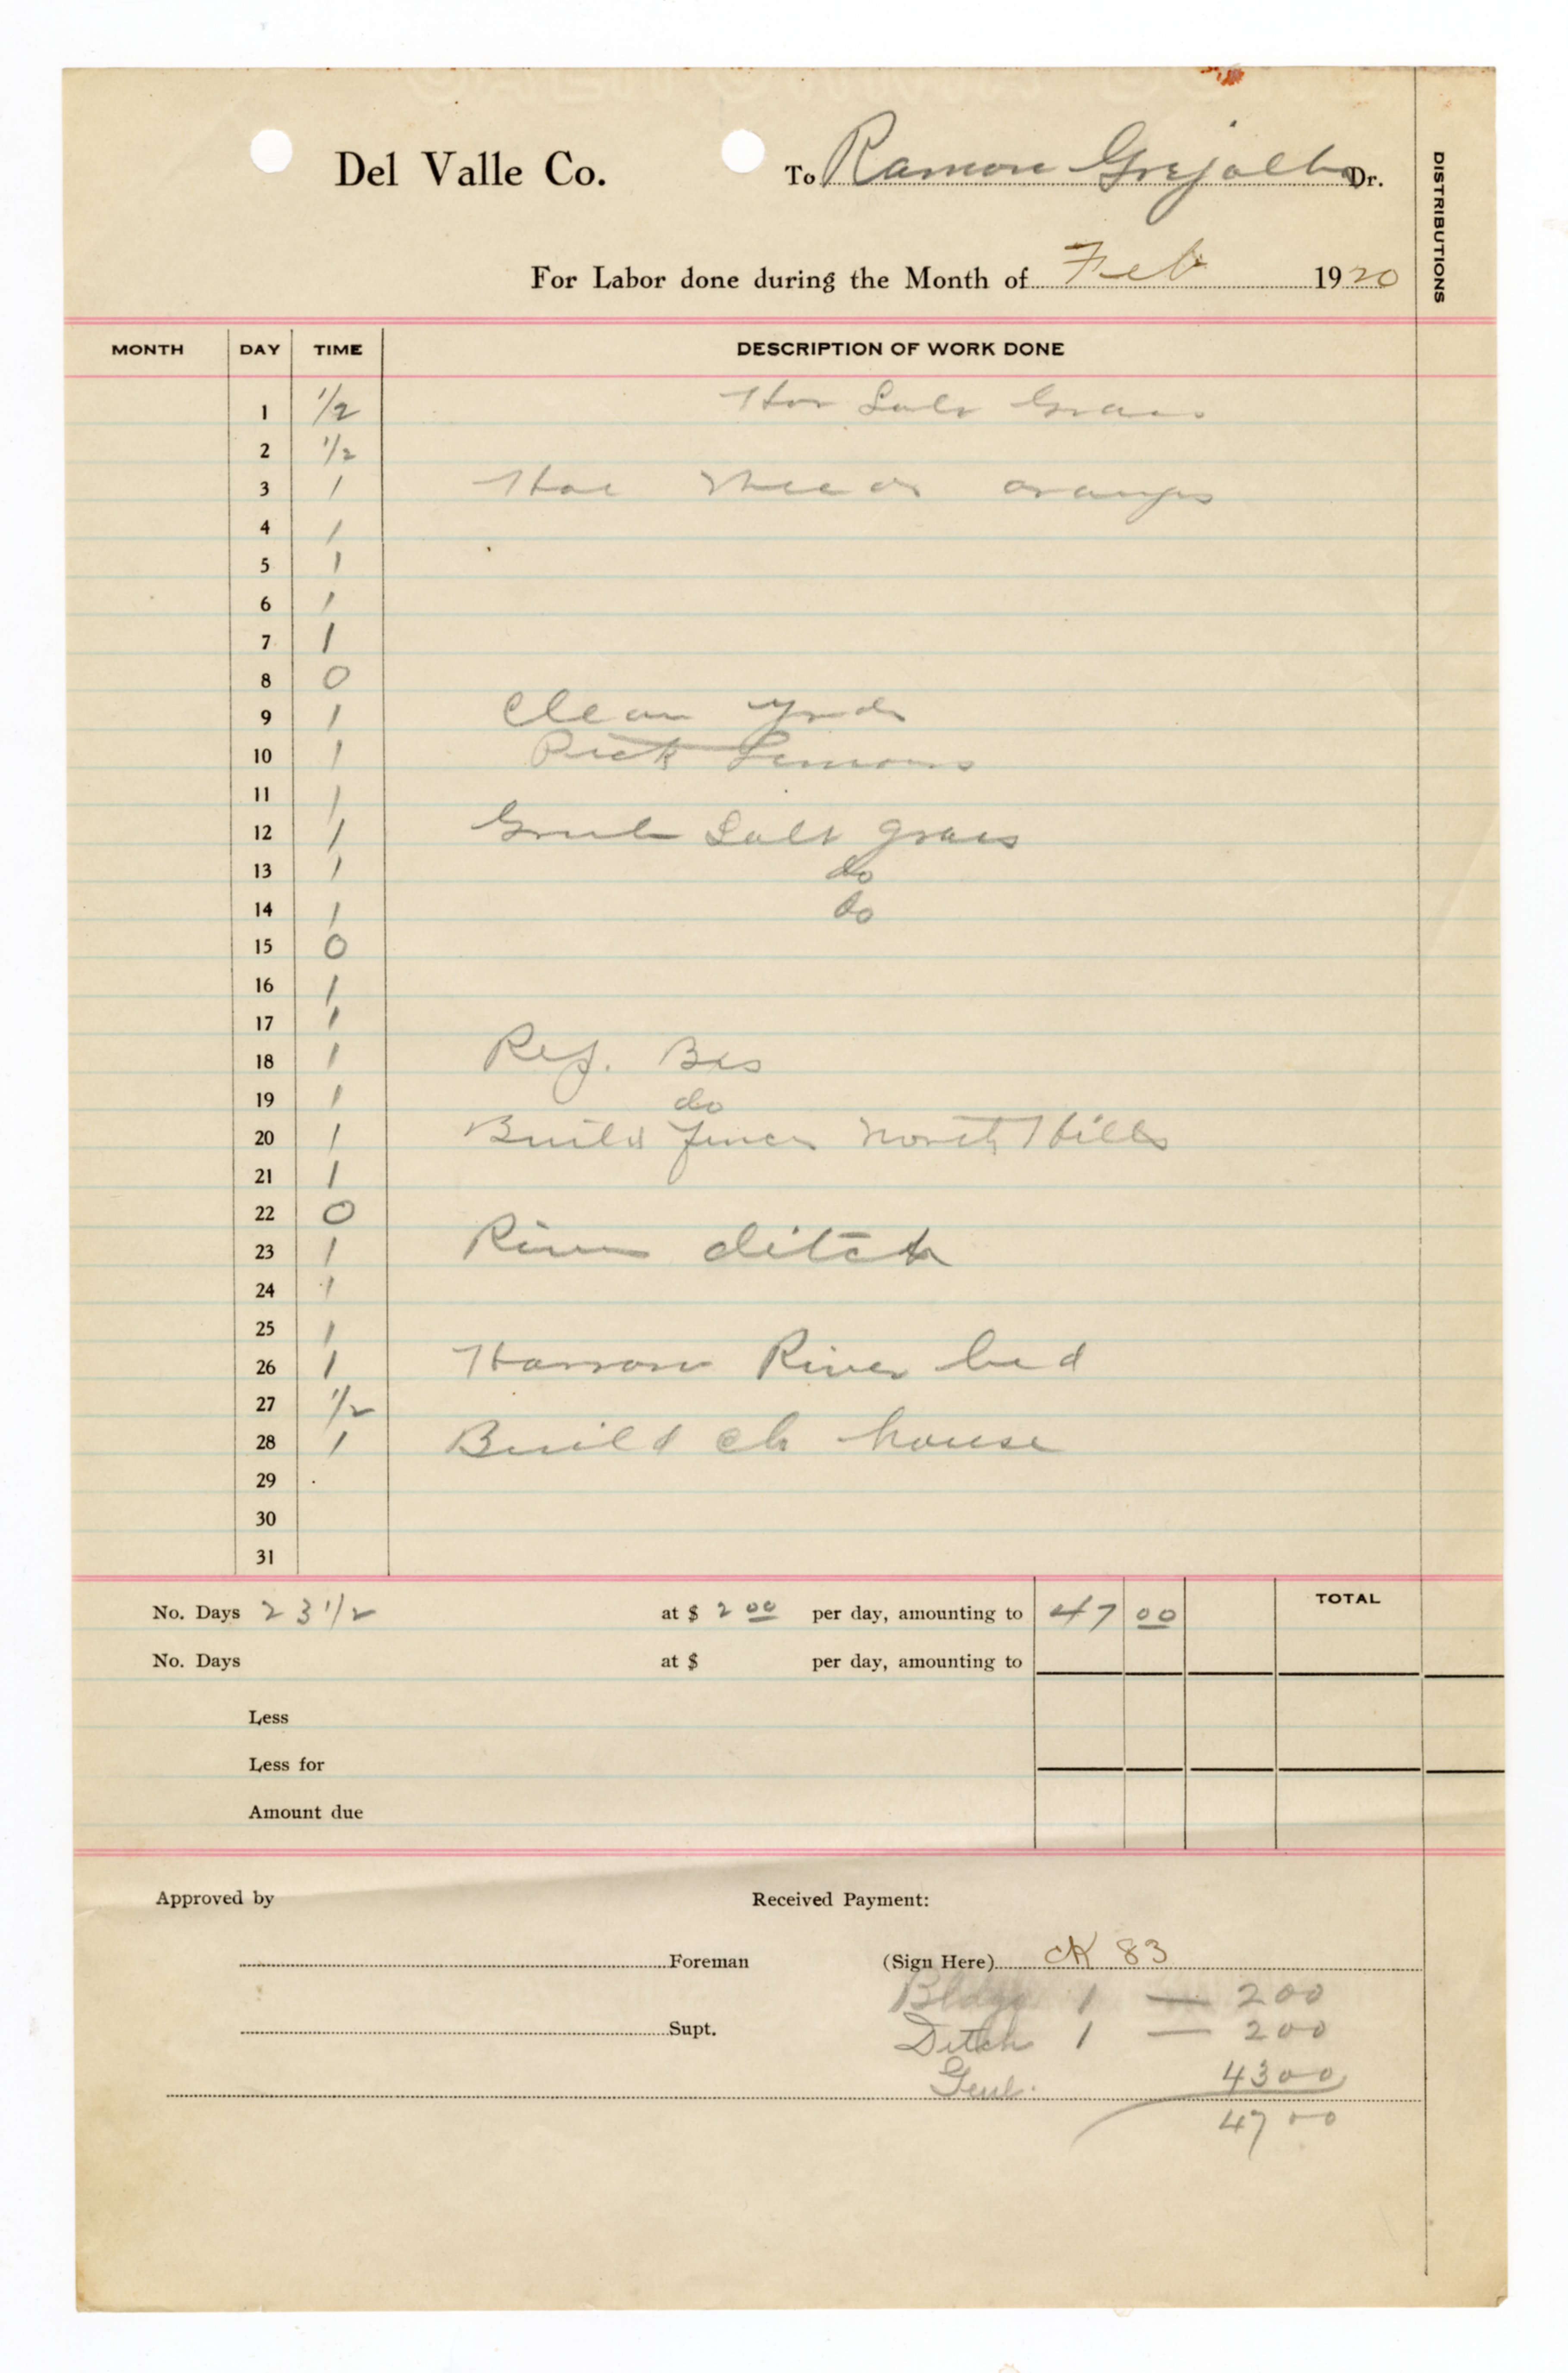 Del Valle Co. To Ramon Grijalba Dr.
For Labor done during the Month of Feb 1920
DISTRIBUTIONS
MONTH DAY TIME DESCRIPTION OF WORK DONE
1 1/2 Hoe Salt Grass
2 1/2
3 1 Hoe Weeds oranges
4 1
5 1
6 1
7 1
8 0
9 1 Clean yards
10 1 Pick Lemons
11 1
12 1 Grub Salt grass
13 1 do
14 1 do
15 0
16 1
17 1
18 1
19 1 do
20 1 Build fence North Hills
21 1
22 0
23 1 River ditch
24 1
25 1
26 1 Harrow River bed
27 1/2
28 1 Build ch house
29
30
31
No. Days 23 1/2 at $ 2 00 per day, amounting to 47 00 TOTAL
No. Days at $ per day, amounting to
Less
Less for
Amount due
Approved by Received Payment:
Foreman (Sign Here) CK 83
Bldgs 1 — 200
Supt. Ditch 1 — 200
Genl. 4300
4700